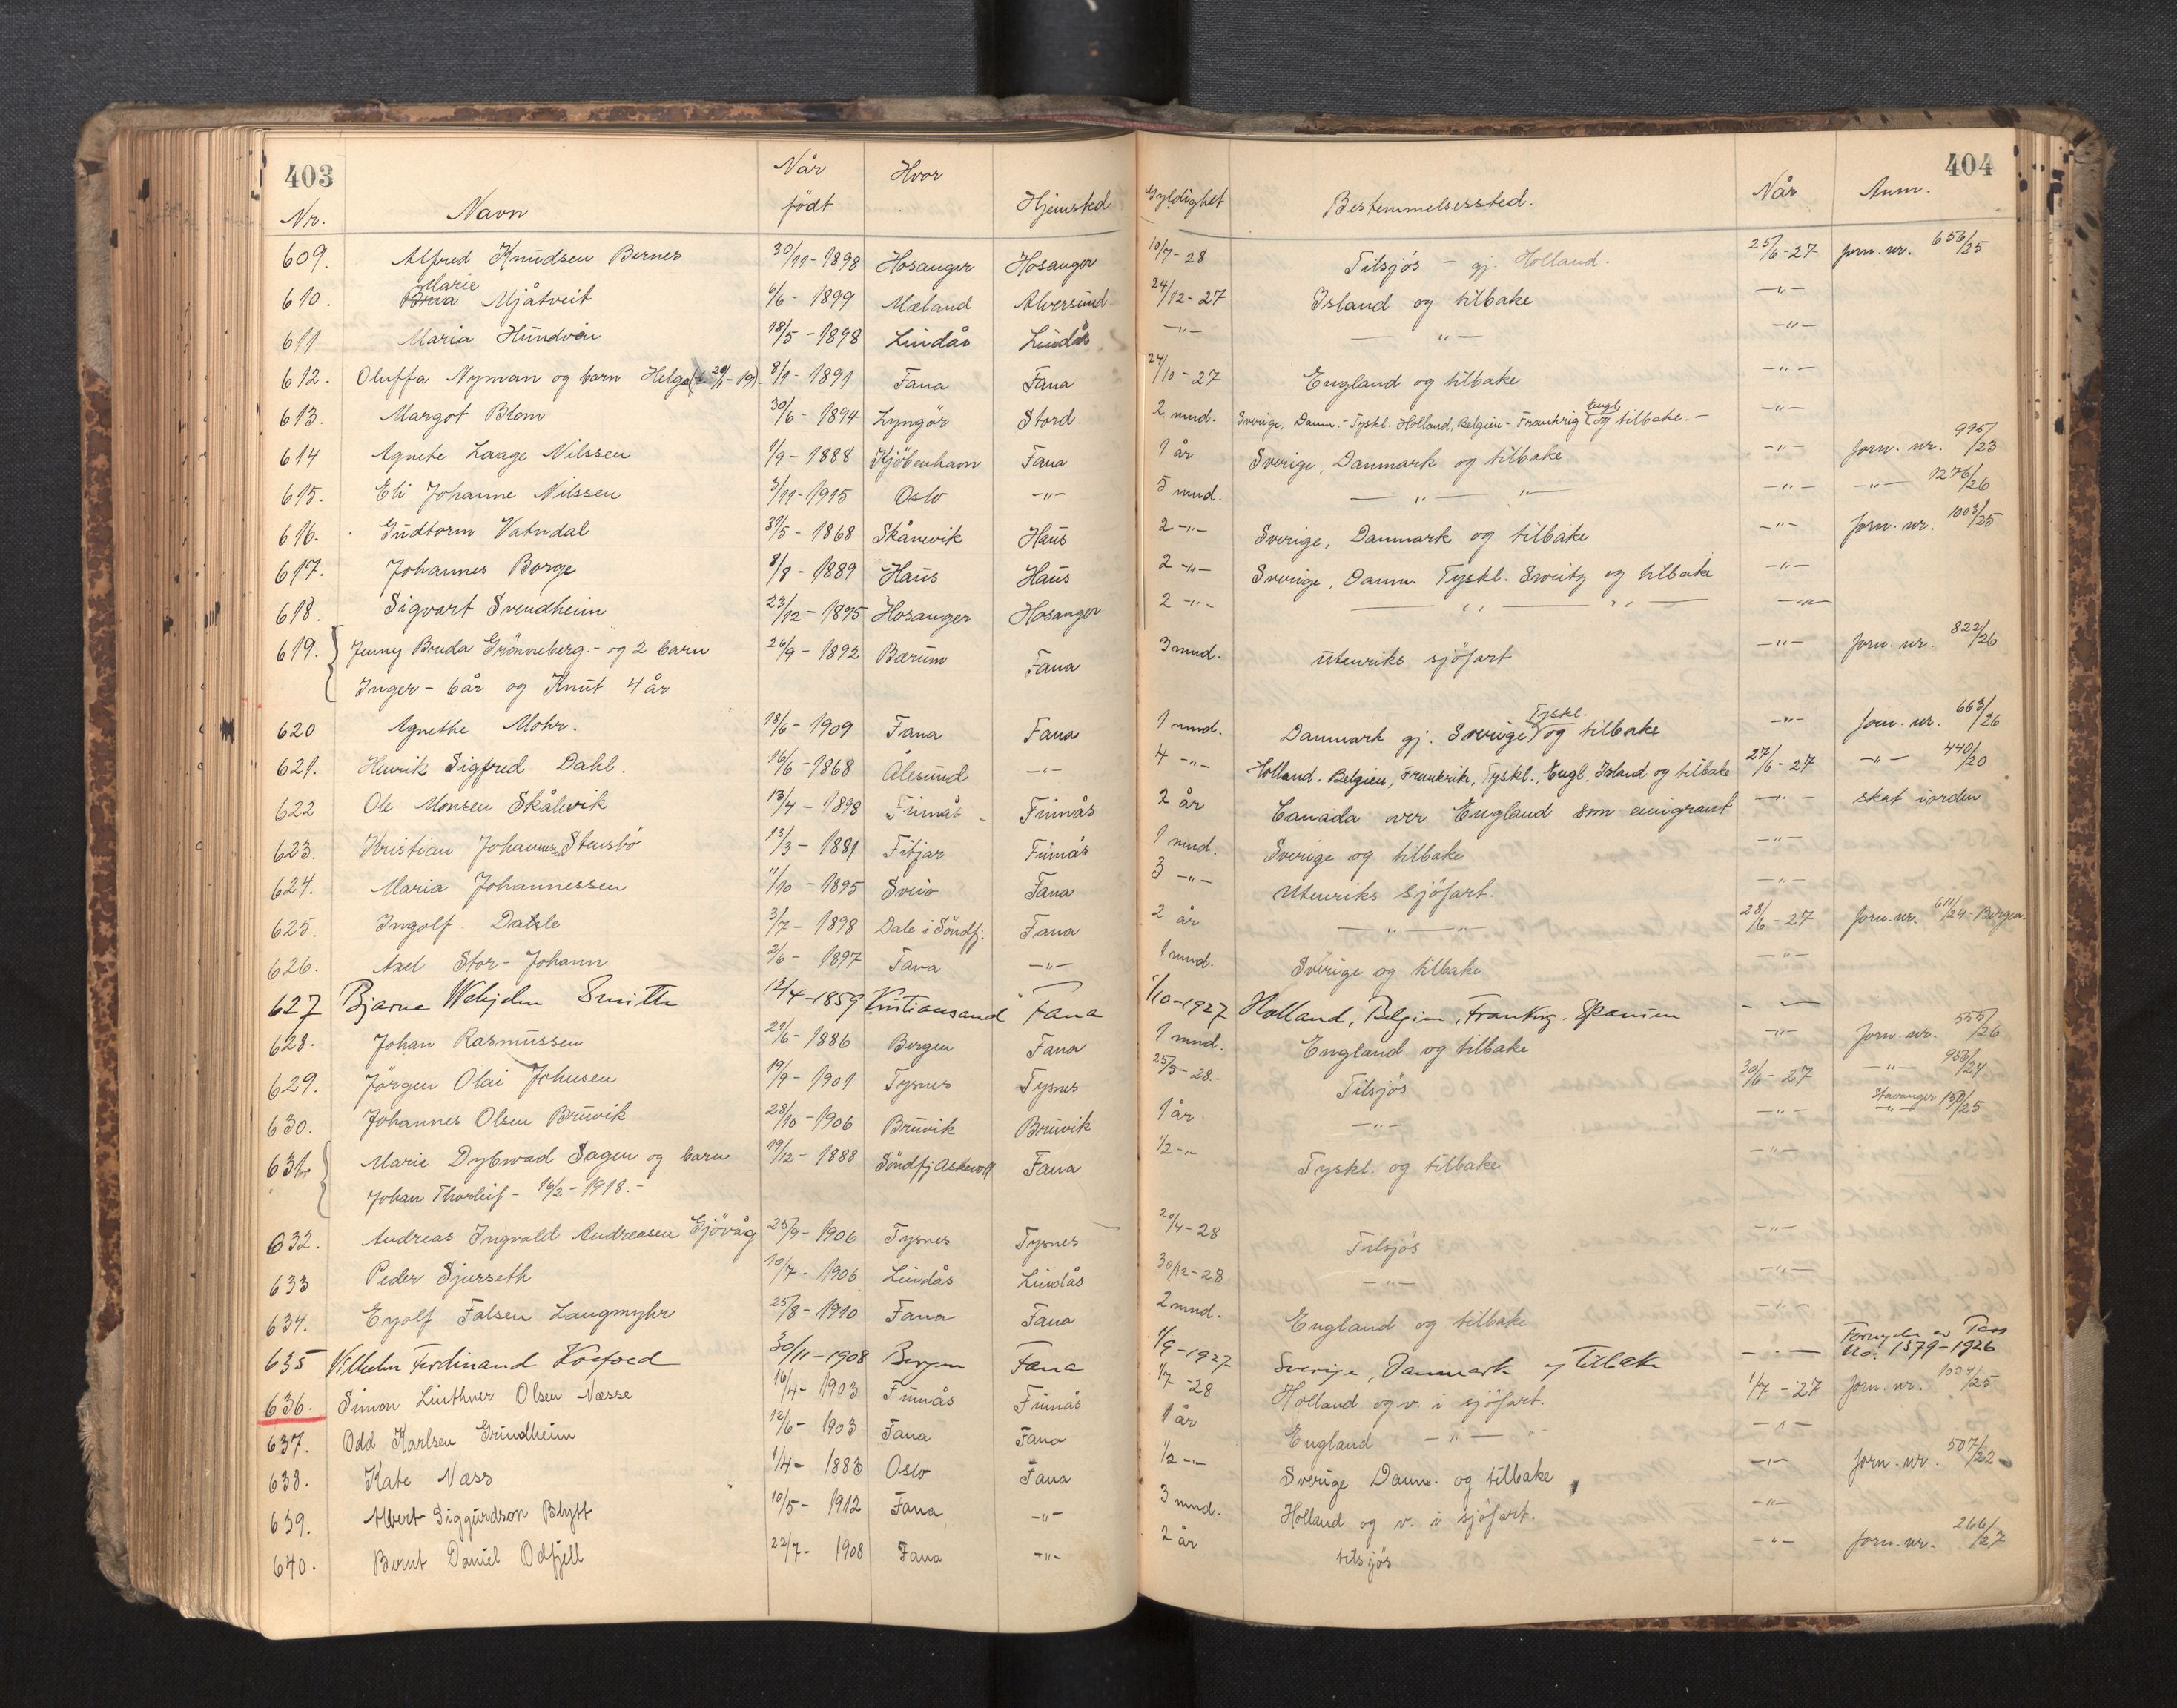 403 404
Nr. Navn Når födt Hvor Hjemsted Gyldighet Bestemmelsessted. Når Anm.
609. Alfred Knudsen Bernes 30/11-1898 Hosanger Hosanger 10/7-28 Tilsjös - gj. Holland. 25/6-27 forn. nr. 656/25
Marie
610. Mjåtveit 6/6-1899 Mæland Alversund 24/12-27 Island og tilbake -"-
611 Maria Hundven 18/5-1898 Lindås Lindås -"- -"- -"-
612. Oluffa Nyman og barn Helga 8/1-1891 Fana Fana 24/10-27 England og tilbake -"-
613. Margot Blom 30/6-1894 Lyngör Stord 2 mnd. Sverige, Danm.-Tyskl. Holland, Belgien-Frankrig Engl og tilbake.- -"-
614 Agnete Laage Nilssen 1/9-1888 Kjöbenhavn Fana 1 år Sverige, Danmark og tilbake -"- forn. nr. 995/23
615. Eli Johanne Nilssen 3/11-1915 Oslo -"- 5 mnd. -"- -"- -"- -"- 1276/26
616. Gudtorm Vatndal 31/5-1868 Skånevik Haus 2 -"- Sverige, Danmark og tilbake -"- forn. nr. 1003/25
617. Johannes Borge 8/8-1889 Haus Haus 2 -"- Sverige, Danm. Tyskl. Sveitz og tilbake -"-
618. Sigvart Svendheim 23/12-1895 Hosanger Hosanger 2 -"- -"- -"- -"-
619. Jenny Breda Grönneberg.- og 2 barn 26/9-1892 Bærum Fana 3 mnd. utenriks sjöfart -"- forn. nr. 822/26
Inger - 6 år og Knut 4 år
620 Agnethe Mohr. 18/6-1909 Fana Fana 1 mnd. Danmark gj. Sverige Tyskl. og tilbake -"- forn. nr. 663/26
621. Henrik Sigfred Dahl. 16/6-1868 Ålesund -"- 4 -"- Holland, Belgien, Frankrike, Tyskl., Engl. Island og tilbake 27/6-27 -"- 440/20
622 Ole Monsen Skålevik 13/4-1898 Fimås Fimås 2 år Canada over England som emigrant -"- skat iorden
623. Kristian Johannes Stensbö 13/3-1881 Fitjar Fimås 1 mnd. Sverige og tilbake -"-
624. Maria Johannessen 11/10-1895 Sveio Fana 3 -"- Utenriks sjöfart. -"-
625. Ingolf 3/7-1898 Dale i Söndfj. Fana 2 år -"- -"- 28/6-27 forn. nr. 611/24-Bergen
626. Axel Stor-Johann 2/6-1897 Fana -"- 1 mnd. Sverige og tilbake -"-
627 Bjarne Smith 12/4-1859 Kristiansand Fana 1/10-1927 Holland, Belgien, Frankrig. Spanien -"-
628. Johan Rasmussen 21/6-1886 Bergen Fana 1 mnd. England og tilbake -"- forn. nr. 555/26
629. Jörgen Olai Johnsen 19/9-1901 Tysnes Tysnes 25/5-28.- Tilsjös 30/6-27 -"- 953/24
630. Johannes Olsen Bruvik 28/10-1906 Bruvik Bruvik 1 år -"- -"- Stavanger -"- 150/25
631. Marie Dybwad Sagen og barn 19/12-1888 Söndfj Askevoll Fana 1/2 -"- Tyskl. og tilbake -"-
Johan Thorleif - 16/2-1918.-
632. Andreas Ingvald Andreasen Gjövåg 25/9-1906 Tysnes Tysnes 20/4-28 Tilsjös -"-
633 Peder Sjurseth 10/7-1906 Lindås Lindås 30/12-28 -"- -"-
634. Eyolf Falsen Langmyhr 25/8-1910 Fana Fana 2 mnd. England og tilbake -"-
635 Vilhelm Ferdinand Koefoed 30/11-1908 Bergen Fana 1/9-1927 Sverige, Danmark og Tilbake -"- Fornyelse av Pass No: 1379-1926
636. Simon Linthner Olsen Næsse 16/4-1903 Fimås Fimås 1/7-28 Holland og v. i sjöfart. 1/7-27 forn. nr. 1034/25
637. Odd Karlsen Grindheim 12/6-1903 Fana Fana 1 år England -"- -"- -"-
638. Kate Næss 1/4-1883 Oslo Fana 1/2 -"- Sverige Danm. og tilbake -"- forn. nr. 507/22
639. Albert Siggurdson Blytt 10/5-1912 Fana -"- 3 mnd. Holland og v. i sjöfart. -"-
640. Bernt Daniel Odfjell 22/7-1908 Fana -"- 2 år tilsjös -"- forn. nr. 266/27